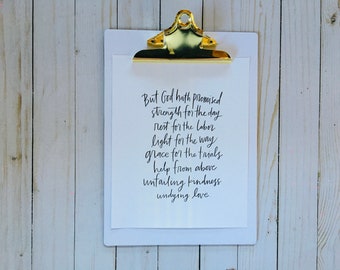 But God hath promised
strength for the day
rest for the labor
light for the way
grace for the trials
help from above
unfailing kindness
undying love.